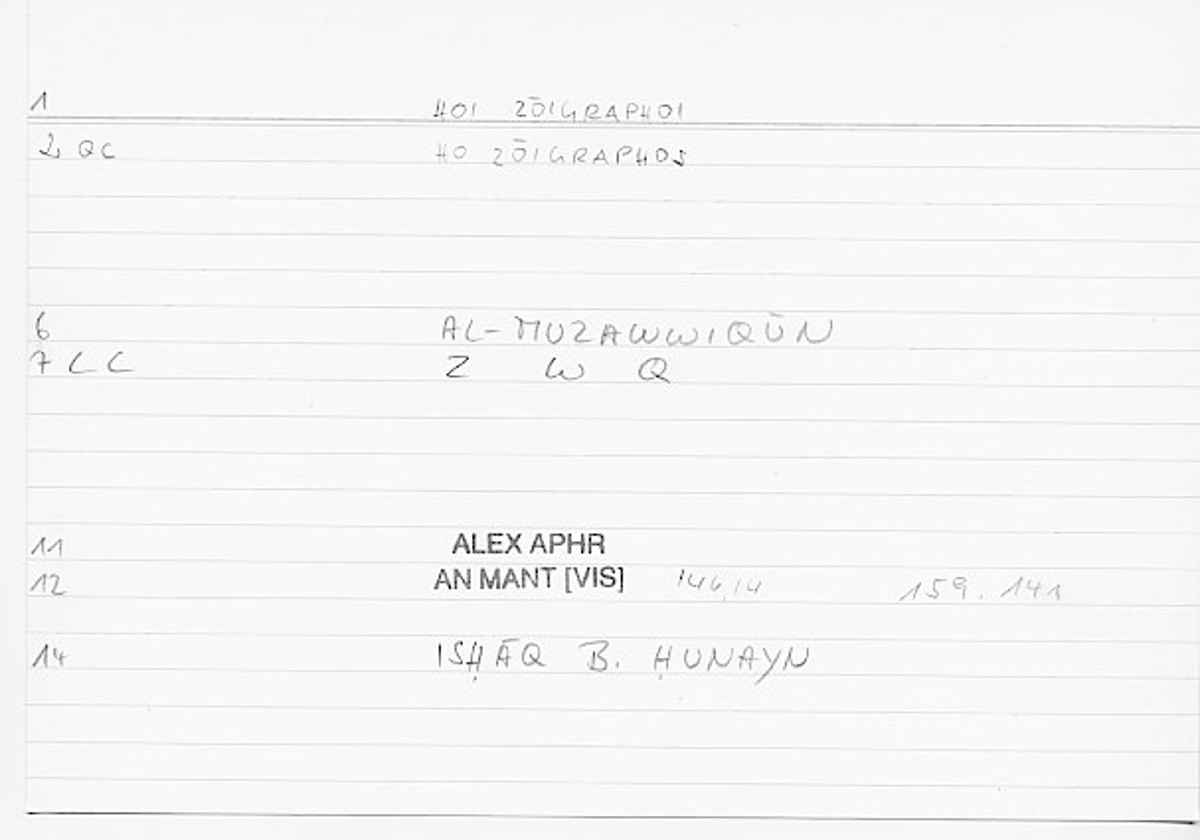 1 HOI ZŌIGRAPHOI
2 QC HO ZŌIGRAPHOS
6 AL-MUZAWWIQŪN
7 LC Z W Q
11 ALEX APHR
12 AN MANT [VIS] 146,14 159.141
14 ISḤĀQ B. ḤUNAYN